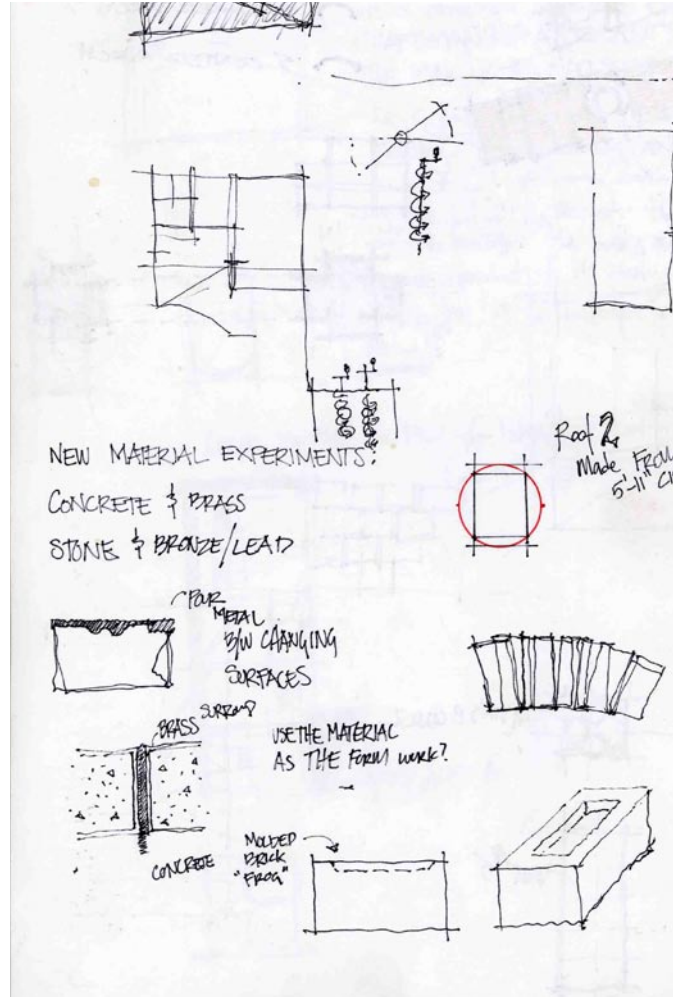 NEW MATERIAL EXPERIMENTS:
CONCRETE & BRASS
STONE & BRONZE/LEAD
Roof 2
Made FROM
5'-11"
POUR
METAL
B/W CHANGING
SURFACES
BRASS
USE THE MATERIAL
AS THE FORM WORK?
CONCRETE
MOLDED
BRICK
"FROG"